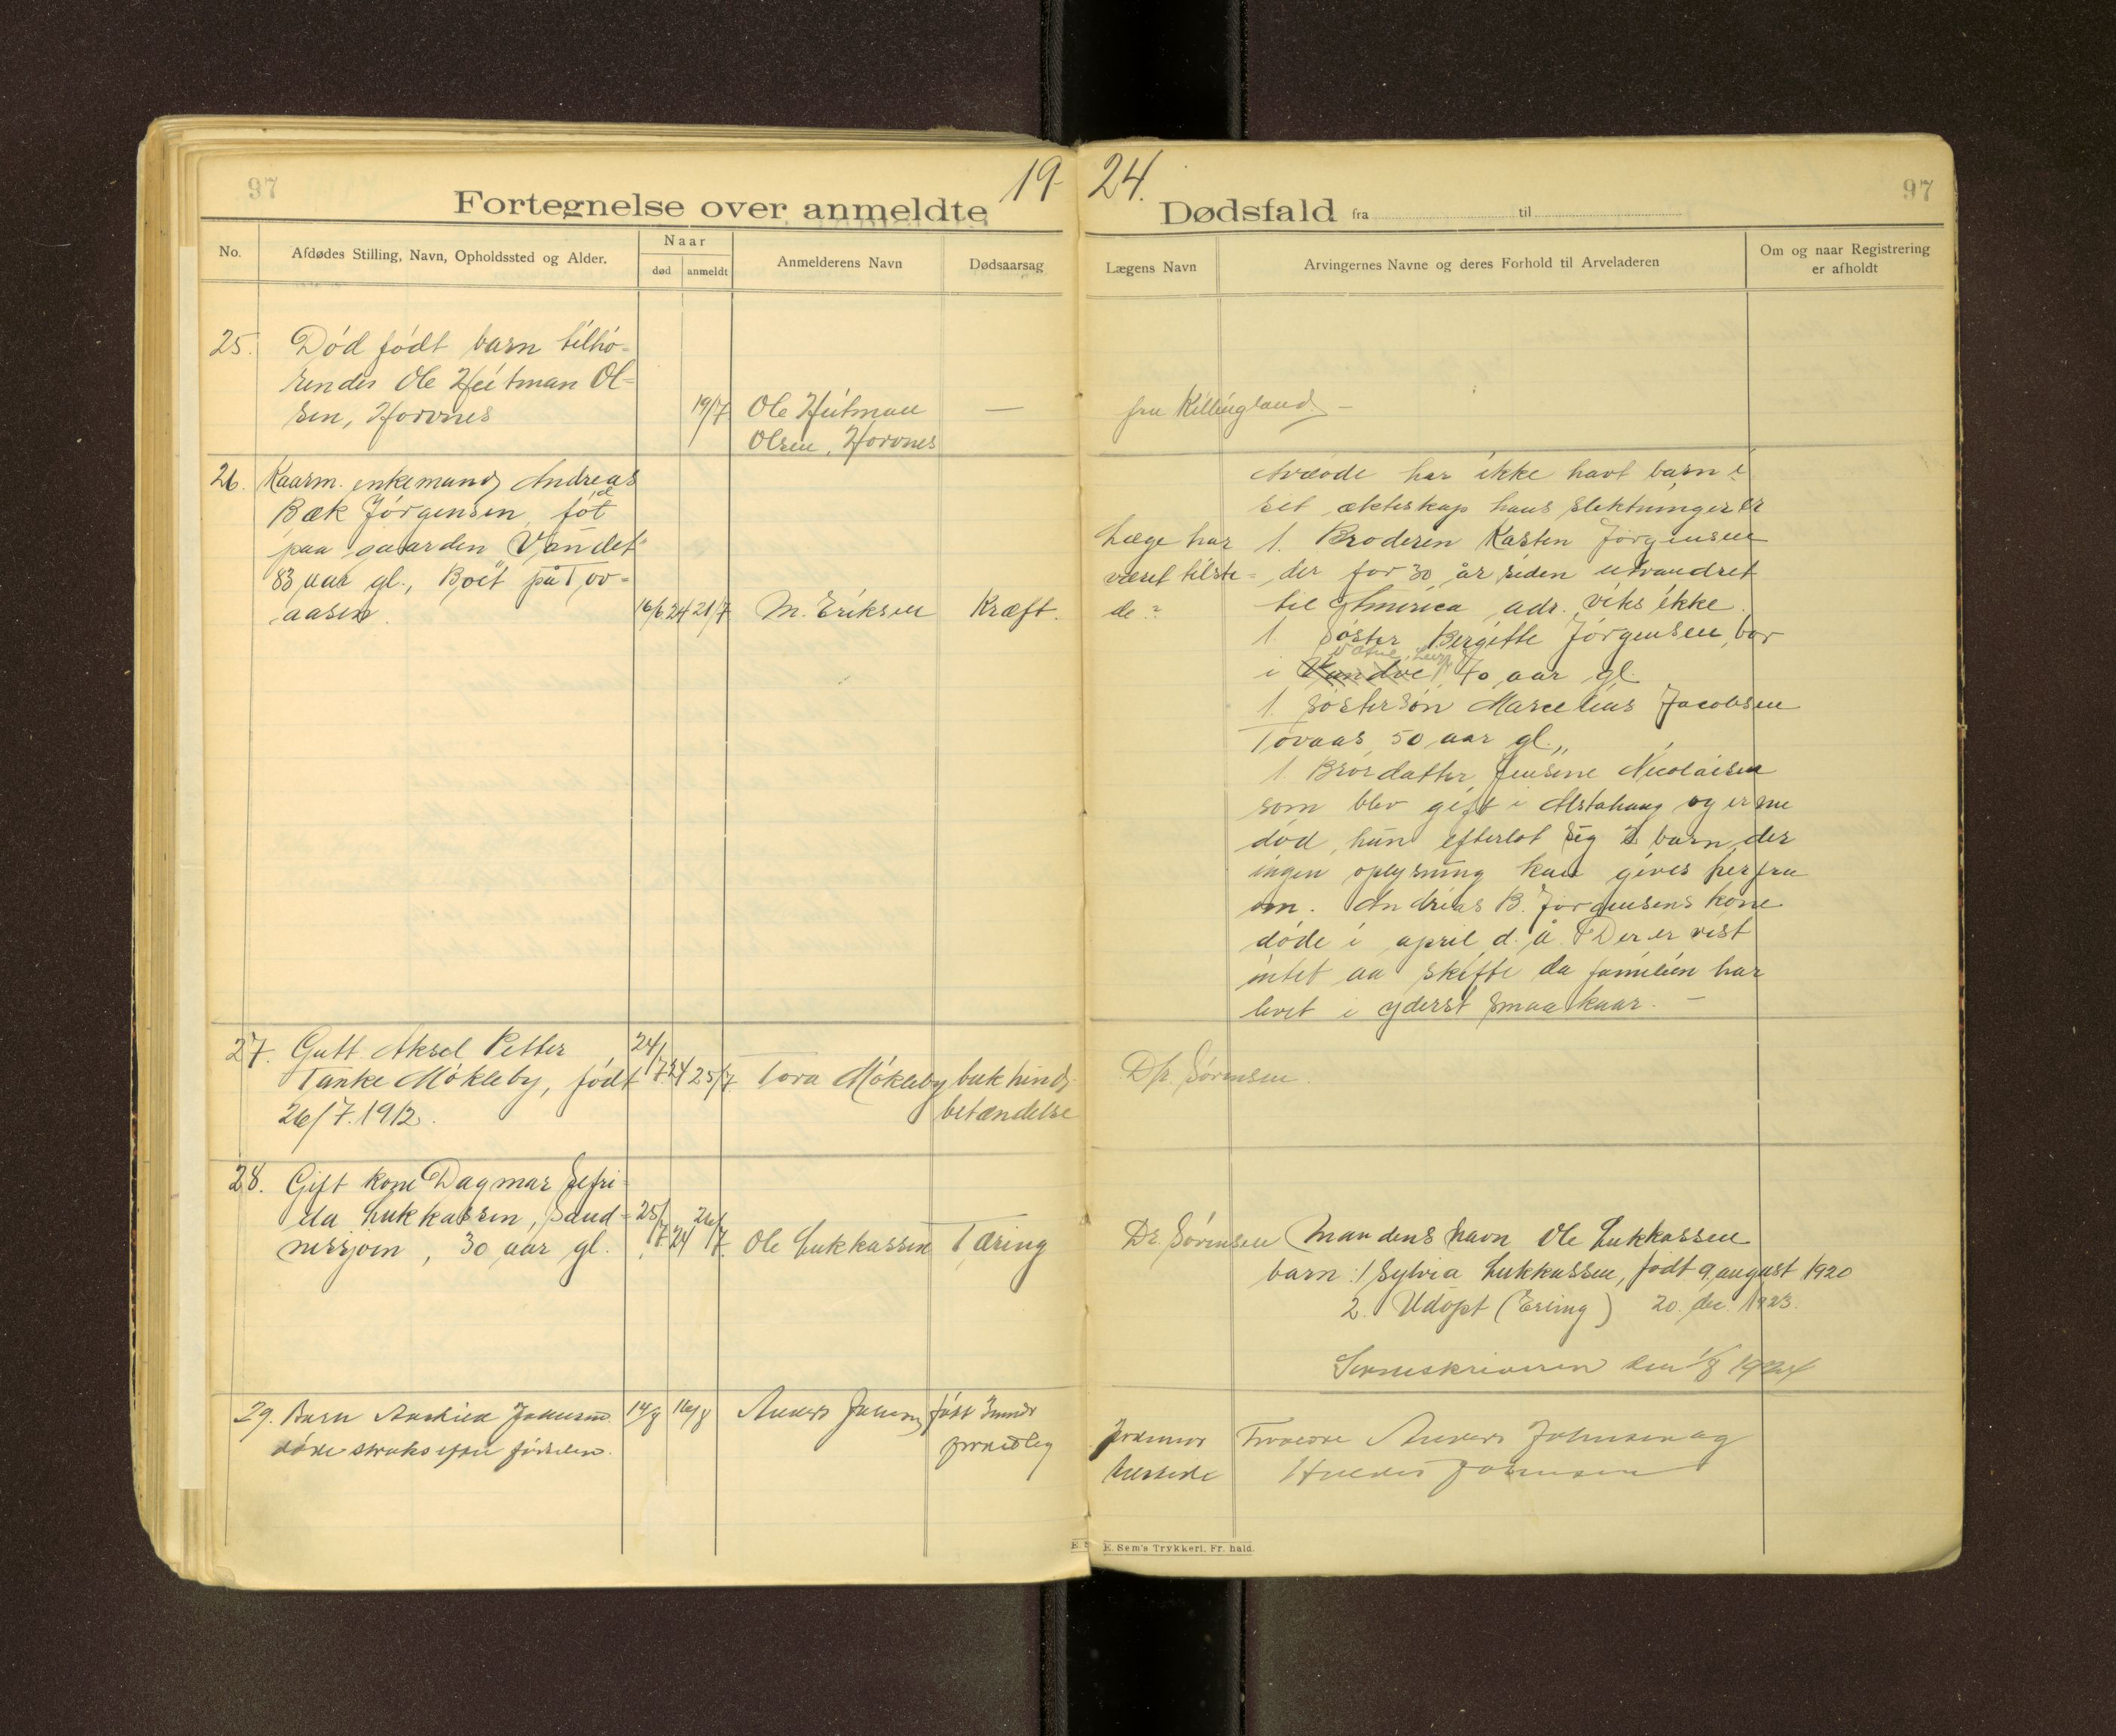 97
19
Fortegnelse over anmeldte
No.
Afdødes Stilling, Navn, Opholdssted og Alder.
Naar
død
anmeldt
Anmelderens Navn
Dødsaarsag
25. Død født barn tilhø-
rendes Ole Heitman Ol-
sen, Horvnes
19/7 Ole Heitman —
Olsen, Horvnes
26. Kaarm. enkemand Andreas
Bæk Jørgensen, født
paa gaarden Vandet
83 aar gl., Boet på Tov-
aasen.
16/6 24 21/7 M. Eriksen Kræft.
27. Gutt Aksel Petter
Tanke Møkleby, født
26/7.1912.
24/7 24 25/7 Tora Møkleby bukhinds
betændelse
28. Gift kone Dagmar Sefri-
da Lukkassen, Sand-
nessjøen, 30 aar gl.
25/7 24 26/7 Ole Lukkassen Tæring
29. Barn
døde straks efter fødselen.
14/8 16/8 Anders født
97
24.
Dødsfald fra til
Lægens Navn
Arvingernes Navne og deres Forhold til Arveladeren
Om og naar Registrering
er afholdt
fru Killingland. —
Avdøde har ikke havt barn i
sit ekteskap hans slektninger er
Læge har 1. Broderen Karsten Jørgensen
været tilste- der for 30 år siden utvandret
de? til America adr. viks ikke.
1. Søster Bergitte Jørgensen, bor
i Vandve 70 aar gl.
1. søstersøn Marcelius Jacobsen
Tovaas 50 aar gl.,,
1 Brordatter Jensine Nicolaisen
som blev gift i Alstahaug og er nu
død, hun efterlot sig 2 barn der
ingen oplysning kan gives herfra
om. Andreas B. Jørgensens kone
døde i april d. å. Der er vist
intet aa skifte da familien har
levet i yderst smaa kaar. —
Dr. Sørensen.
Dr. Sørensen Mandens navn Ole Lukkassen
barn: 1 Sylvia Lukkassen, født 9 august 1920
2. Udøpt (Erling) 20. dec. 1923.
Sorenskriveren den 1/8 1924
Jordmor Forældre Anders Johnsen og
tilstede Johnsen
E. Sem's Trykkeri. Fr. hald.